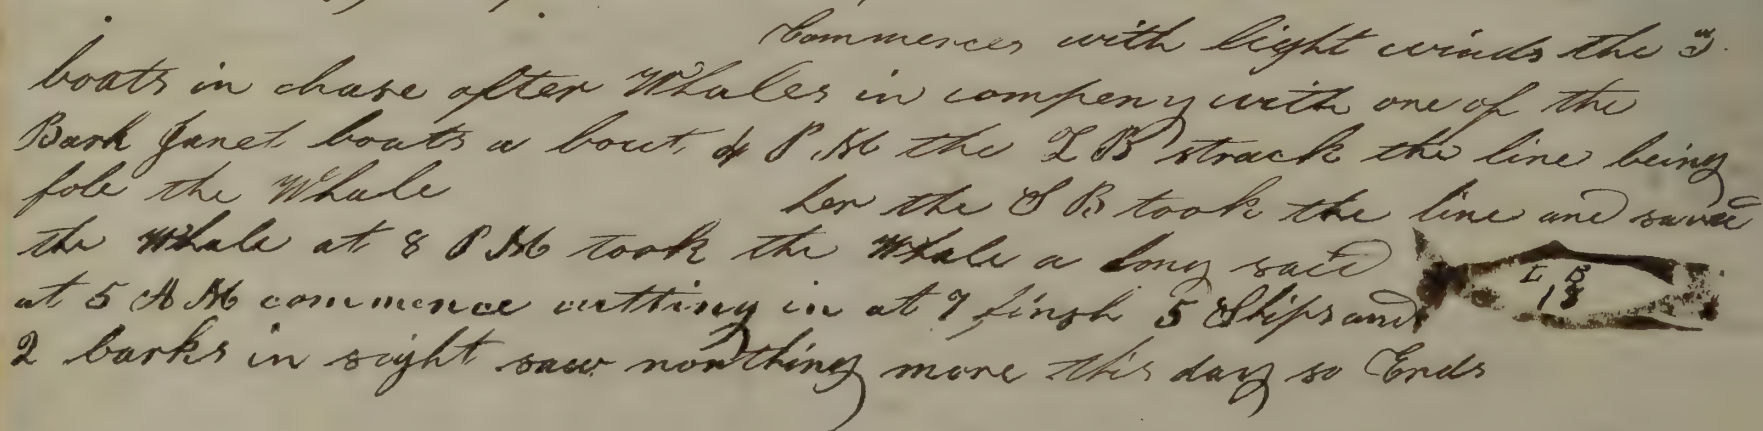 Commences with light winds the 3
boats in chase after Whales in compeny with one of the
Bark Janet boats a bout 4 P.M the L B struck the line being
fole the Whale her the S B took the line and saved
the Whale at 8 P M took the Whale a long said
L B
18
at 5 A M commence cutting in at 9 finsh 5 Ships and
2 barks in sight saw nonthing more this day so Ends